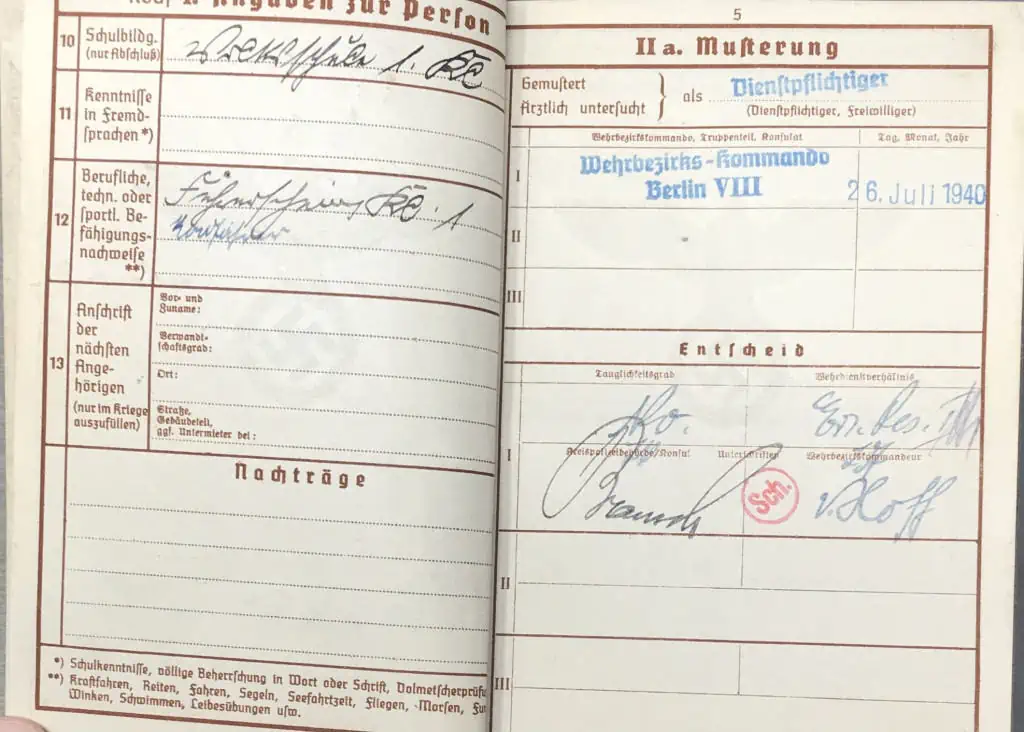 I. Angaben zur Person
10 Schulbildg.
(nur Abschluß)
Volksschule 1. Kl.
11 Kenntnisse
in Fremd-
sprachen *)
12 Berufliche,
techn. oder
sportl. Be-
fähigungs-
nachweise
**)
Führerschein Kl. 1
13 Anschrift
der
nächsten
Ange-
hörigen
(nur im Kriege
auszufüllen)
Vor- und
Zuname:
Verwandt-
schaftsgrad:
Ort:
Straße,
Gebäudeteil,
ggf. Untermieter bei:
Nachträge
*) Schulkenntnisse, völlige Beherrschung in Wort oder Schrift,
**) Kraftfahren, Reiten, Fahren, Segeln, Seefahrtzeit, Fliegen, Morsen,
Winken, Schwimmen, Leibesübungen usw.
5
II a. Musterung
Gemustert
Ärztlich untersucht } als Dienstpflichtiger
(Dienstpflichtiger, Freiwilliger)
Wehrbezirkskommando, Truppenteil, Konsulat Tag, Monat, Jahr
I Wehrbezirks-Kommando
Berlin VIII 26. Juli 1940
II
III
Entscheid
Tauglichkeitsgrad Wehrdienstverhältnis
Ers. Res.
I Kreispolizeibehörde/Konsul Unterschriften Wehrbezirkskommandeur
Sch. v. Hoff
II
III